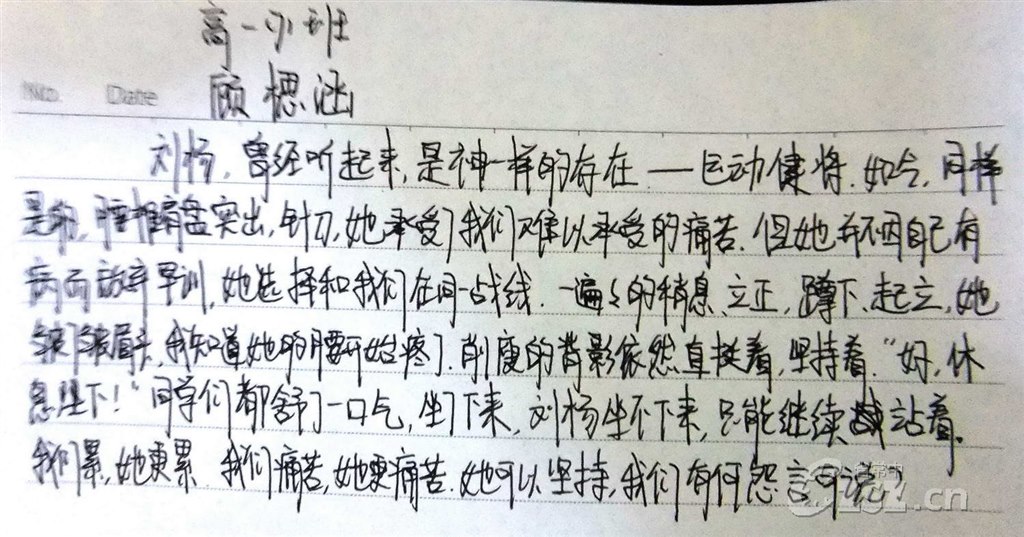 高一小班
No. Date 顾楒涵
刘杨,曾经听起来,是神一样的存在——运动健将.如今,同样
是的,腰椎肩盘突出,针刀,她承受了我们难以承受的痛苦.但她并不因自己有
病而放弃早训,她选择和我们在同一战线.一遍々的稍息、立正,蹲下、起立,她
皱了皱眉头,我知道她的腰开始疼了.削瘦的背影依然直挺着,坚持着."好,休
息坐下!"同学们都舒了一口气,坐了下来,刘杨坐不下来,只能继续站着.
我们累,她更累.我们痛苦,她更痛苦.她可以坚持,我们有何怨言可说?
.cn